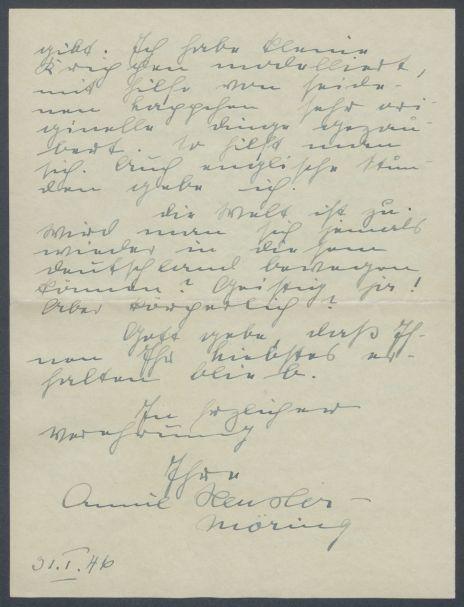 gibt. Ich habe kleine
Krippen modelliert,
mit Hilfe von seide-
nen Läppchen sehr ori-
ginelle Dinge gezau-
bert. So hilft man
sich. Auch englische Stun-
den gebe ich.
Die Welt ist zu.
Wird man sich jemals
wieder in diesem
Deutschland bewegen
können? Geistig ja!
Aber körperlich?
Gott gebe, daß Ih-
nen Ihr Liebstes er-
halten blieb.
In herzlicher
Verehrung
Ihre
Annie
Möring
31.I.46